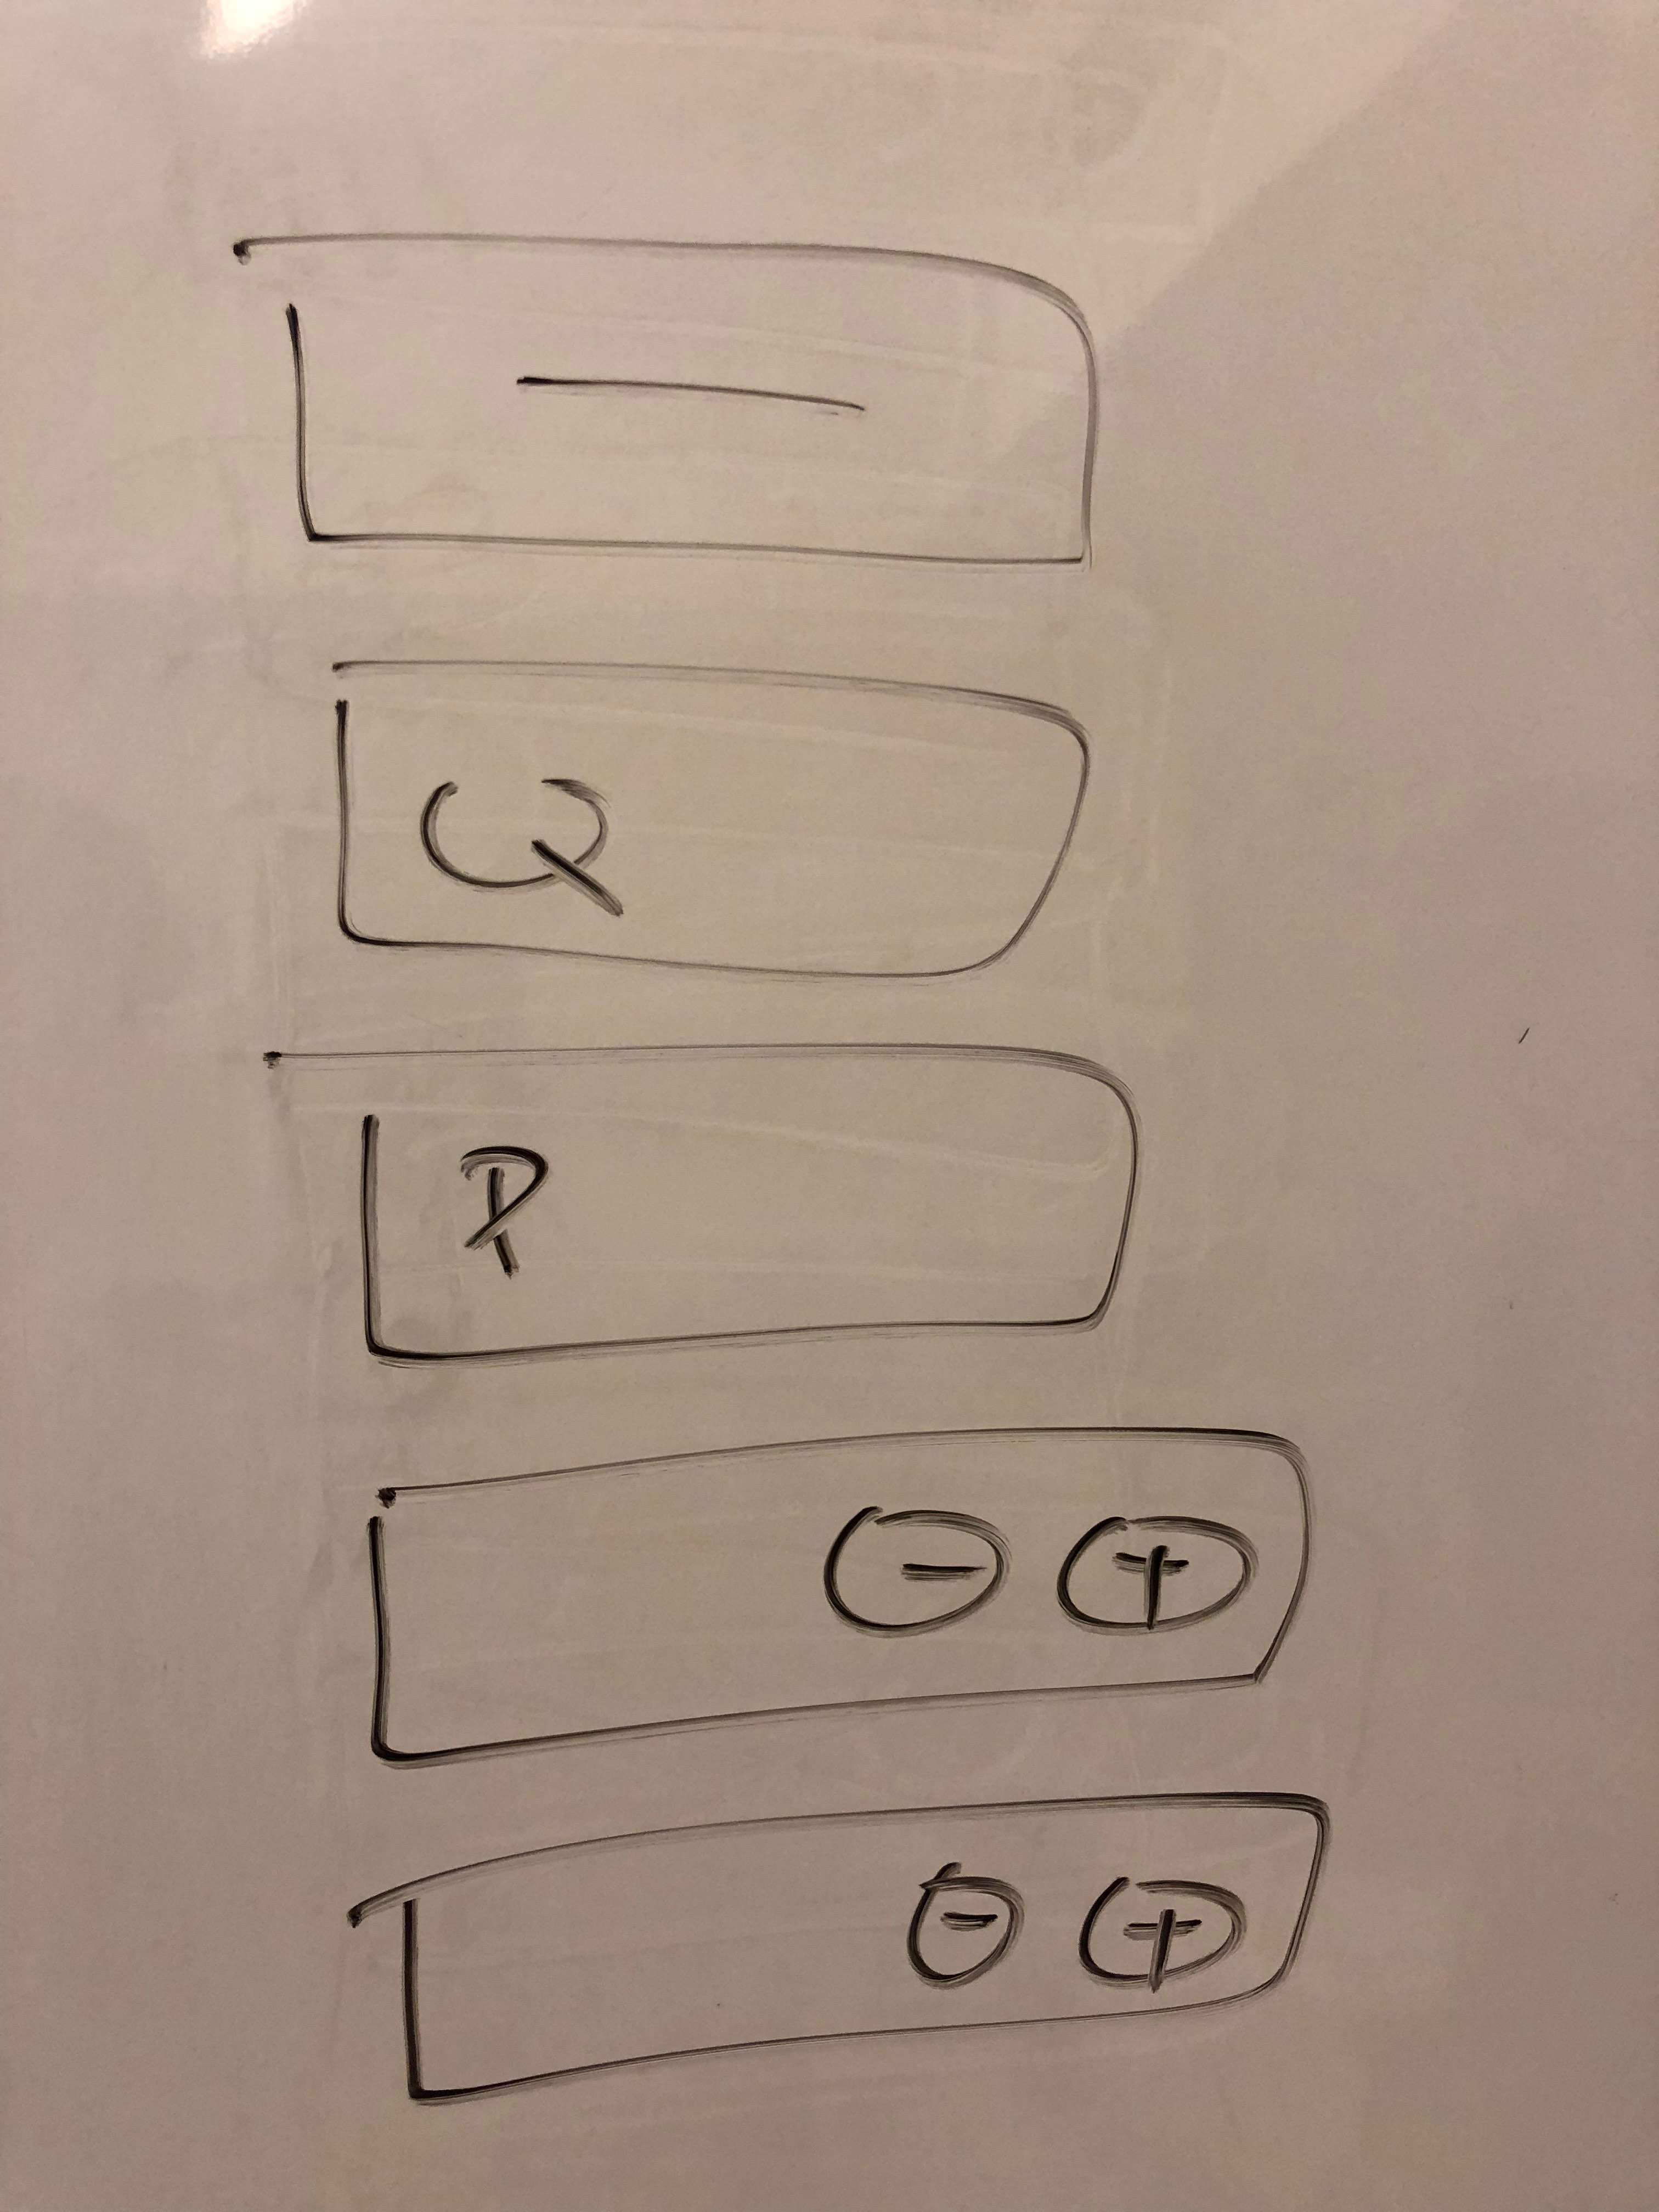 —
Q
P
- +
- +